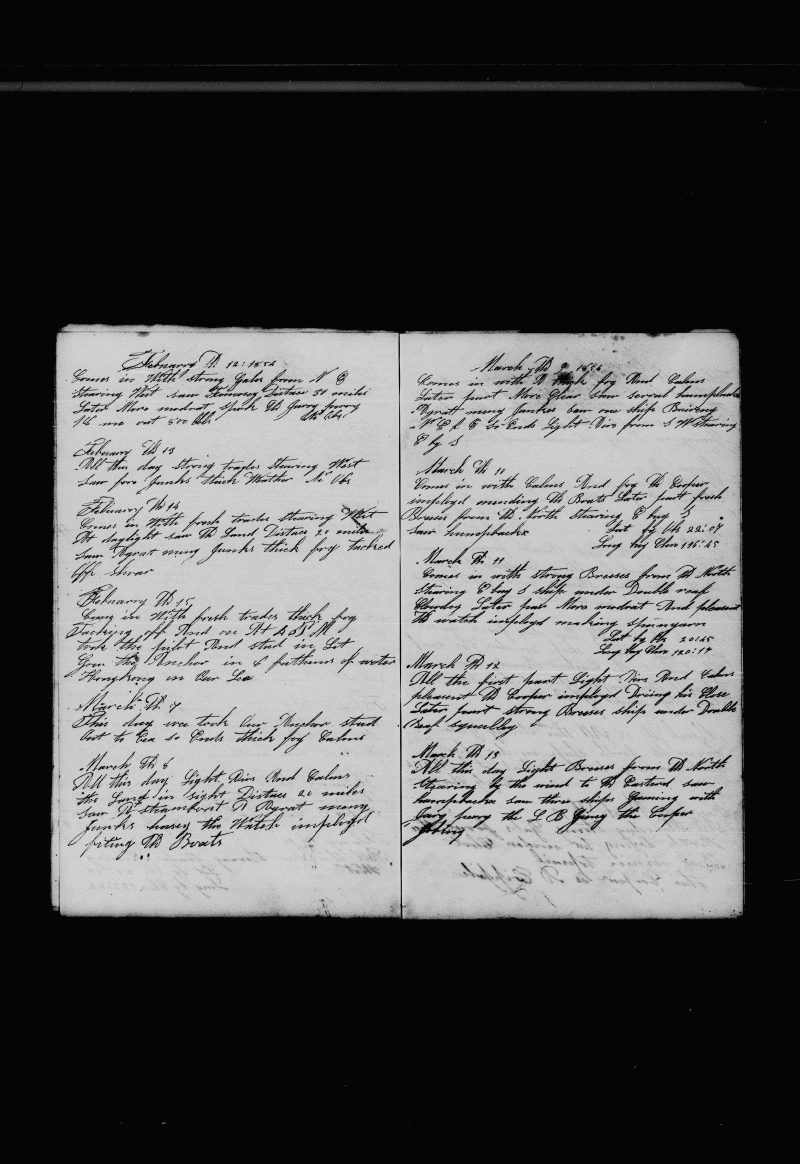 February Th 12: 1854
Comes in With strong Gales from N E
Stearing West saw Formosy Distace 50 miles
Later More modrat spoak Th
16 mo out 500 bbls No Obs
Febuary Th 13
All this day strong trades stearing West
Saw for Junks thick Weather No Obs
Febuary Th 14
Comes in With fresh trades stearing West
At daylight saw Th Land Distace 20 miles
Saw A grat meny Junks thick fog tacked
off shoar
Febuarry Th 15
Coms in With fresh trades thick fog
Tacking off And on At 4 P M
took the pilot And stud in Let
Goan the Anchor in 6 fathums of water
Hongkong on Our Lea
March Th 7
This day wee took Our Anchor stud
Out to Cea so Ends thick fog Calms
March Th 8
All this day Light Airs And Calms
the Land in sight Distace 20 miles
Saw A steamboat A Agrat many
Junks hasey the Watch imployd
fiting Th Boats
March Th 9 1854
Comes in with A thick fog And Calms
Later paart More Clear saw several humpbacks
Agratt meny Junkes saw one ship
So Ends Light Airs from S W Stearing
E by S
March Th 10
Comes in with Calms And fog Th Cooper
imployd mending Th Boats Later part fresh
Breses from Th North Stearing E buy S
Saw humpbacks Lat by Obs 22:07
Long buy Chro 116:45
March Th 11
Comes in with strong Breeses from Th North
Stearing E buy S ship under Double reaf
Clowdey Later paar More modrat And pleasent
Th watch imployd making spunyarn
Lat by Obs 20:45
Long buy Chro 120:14
March Th 12
All the first paart Light Airs And Calms
pleasent Th Cooper imployd
Later paart strong Breeses ship under Double
Reaf squalley
March Th 13
All this day Light Breses from Th North
Stearing by the wind to Th Eastard saw
humpbackes saw three ships Gaming with
the Cooper